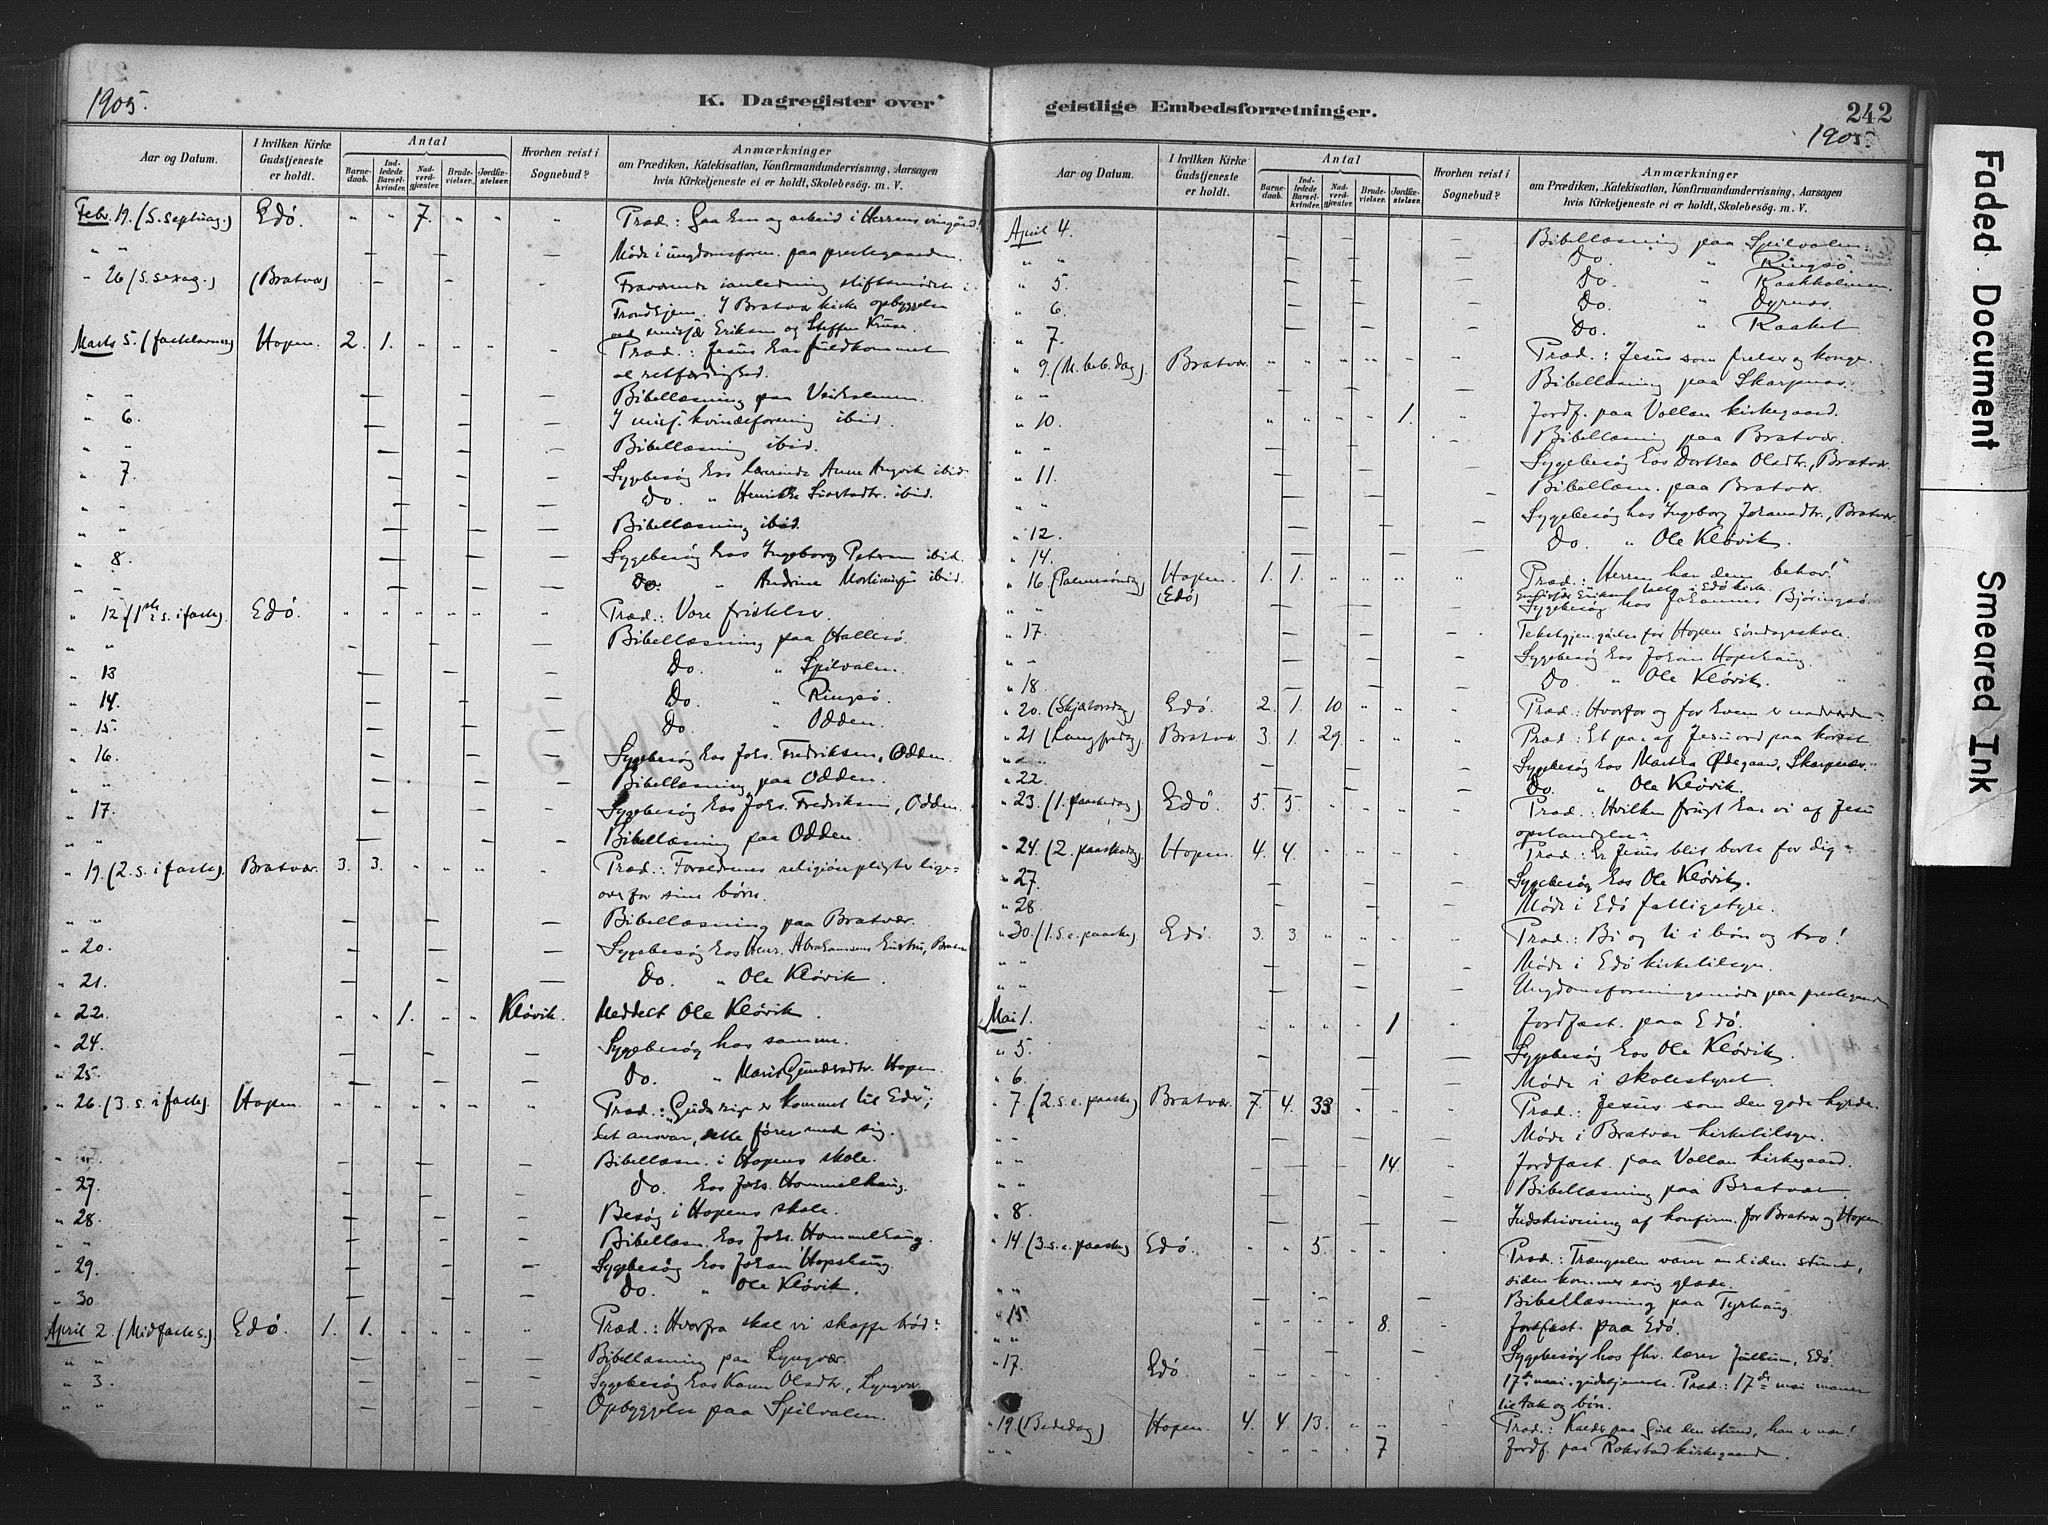 1905.
K. Dagregister over
Aar og Datum.
I hvilken Kirke Gudstjeneste er holdt.
Antal
Barnedaab.
Indledede Barselkvinder.
Nadverdgjæster.
Brudevielser.
Jordfæstelser.
Hvorhen reist i Sognebud?
Anmærkninger
om Prædiken, Katekisation, Konfirmandundervisning, Aarsagen
hvis Kirketjeneste ei er holdt, Skolebesög. m. V.
Febr. 19. (S. septuag.) Edö. " " 7. " " " Præd.: Gaa hen og arbeid i Herrens vingård!
" " — — — Møde i ungdomsforen. paa prestegaarden.
" 26 (S. sexag.) (Bratvær) — — — Fraværende i anledning stiftsmødet i
Trondhjem. I Bratvær kirke opbyggelse
ved Eriksen og Steffen Kruse.
Marts 5. (fastelavns) Hopen. 2. 1. " " " " Præd.: Jesus har fuldkommet
al retfærdighed.
" " — — — Bibellæsning paa
" 6. — — — I misj. kvindeforening ibid.
" " — — — Bibellæsning ibid.
" 7. — — — Sygebesög hos lærerinde Anne Angvik ibid.
" " — — — Do. " Henrikke ibid.
" " — — — Bibellæsning ibid.
" 8. — — — Sygebesög hos Ingeborg Petersen ibid.
" " — — — Do. " Andrine ibid.
" 12. (1ste s. i faste). Edö. " " " " " " Præd.: Vore fristelser.
" " — — — Bibellæsning paa Hallesö.
" 13 — — — Do. " Spilvalen.
" 14. — — — Do. " Ringsö
" 15. — — — Do. " Odden.
" 16. — — — Sygebesög hos Johs. Fredriksen, Odden.
" " — — — Bibellæsning paa Odden.
" 17. — — — Sygebesög hos Johs. Fredriksen, Odden.
" " — — — Bibellæsning paa Odden.
" 19. (2. s. i faste). Bratvær. 3. 3. " " " " Præd.: Forældrenes religiöse pligter lige-
over for sine børn.
" " — — — Bibellæsning paa Bratvær.
" 20. — — — Sygebesög hos Henr. Abrahamsens hustru, Bratvær
" 21. — — — Do. " Ole Kløvik.
" 22. " " 1. " " Kløvik. Meddelt Ole Kløvik.
" 24. — — — Sygebesög hos samme.
" 25. — — — Do. " Marit Gundersdtr. Hopen.
" 26. (3. s. i faste). Hopen. " " " " " " Præd.: "Guds rige er kommet til Eder";
det ansvar, dette fører med sig.
" " — — — Bibellæsn. i Hopens skole.
" 27. — — — Do. hos Johs. Hommelhaug.
" 28. — — — Besög i Hopens skole.
" " — — — Bibellæsn. hos Johs. Hommelhaug.
" 29. — — — Sygebesög hos Johan Hopshaug.
" 30 — — — Do. " Ole Kløvik.
April 2. (Midfastes.) Edö. 1. 1. " " " " Præd.: Hvorfra skal vi skaffe brød?
" " — — — Bibellæsning paa Lyngvær.
" 3. — — — Sygebesög hos Karen Olsdtr., Lyngvær.
" " — — — Opbyggelse paa Spilvalen.
geistlige Embedsforretninger.
242
1905.
Aar og Datum.
I hvilken Kirke Gudstjeneste er holdt.
Antal
Barnedaab.
Indledede Barselkvinder.
Nadverdgjæster.
Brudevielser.
Jordfæstelser.
Hvorhen reist i Sognebud?
Anmærkninger
om Prædiken, Katekisation, Konfirmandundervisning, Aarsagen
hvis Kirketjeneste ei er holdt, Skolebesög. m. V.
April 4. — — — Bibellæsning paa Spilvalen.
" " — — — Do. " Ringsö.
" 5 — — — Do. " Raakholmen.
" 6. — — — Do. " Dyrnæs.
" 7. — — — Do. " Raaket
" 9. (M. beb. dag). Bratvær. " " " " " " Præd.: Jesus som frelser og konge.
" " — — — Bibellæsning paa Skarpnæs.
" 10. " " " " 1. " Jordf. paa Vollan kirkegaard.
" " — — — Bibellæsning paa Bratvær.
" 11. — — — Sygebesög hos Dorthea Olsdtr., Bratvær
" " — — — Bibellæsn. paa Bratvær.
" 12. — — — Sygebesög hos Ingeborg Johansdtr., Bratvær.
" 14. — — — Do. " Ole Kløvik.
" 16. (Palmesöndag) Hopen. (Edö) 1. 1. " " " " Præd.: "Herren har dem behov!"
Eriksen i Edö kirke.
" " — — — Sygebesög hos Johannes Björingsö.
" 17. — — — Tekstgjen. for Hopen söndagsskole.
" " — — — Sygebesög hos Johan Hopshaug.
" 18. — — — Do. " Ole Kløvik.
" 20. (Skjærtorsdag) Edö. 2. 1. 10 " " " Præd.: Hvorfor og for hvem er nadverden?
" 21 (Langfredag) Bratvær 3. 1. 29. " " " Præd.: Et par af Jesu ord paa korset.
" " — — — Sygebesög hos Martha Ødegaard, Skarpnæs.
" 22. — — — Do. " Ole Kløvik.
" 23. (1. paaskedag) Edö. 5. 5. " " " " Præd.: Hvilken frugt har vi af Jesu
opstandelse?
" 24. (2. paaskedag). Hopen. 4. 4. " " " " Præd.: Er Jesus blit borte for dig?
" 27. — — — Sygebesög hos Ole Kløvik.
" 28. — — — Møde i Edö fattigstyre.
" 30. (1. s. e. paaske) Edö. 3. 3. " " " " Præd.: Bi og ti i bøn og tro!
" " — — — Møde i Edö kirketilsyn.
" " — — — Ungdomsforeningsmøde paa prestegaarden
Mai 1. " " " " 1 " Jordfæst. paa Edö.
" 5. — — — Sygebesög hos Ole Kløvik.
" 6. — — — Møde i skolestyret.
" 7 (2. s. e. paaske) Bratvær. 7. 4. 33 " " " Præd.: Jesus som den gode hyrde.
" " — — — Møde i Bratvær kirketilsyn.
" " — — 14. — Jordfæst. paa Vollan kirkegaard.
" " — — — Bibellæsning paa Bratvær
" 8. — — — Indskrivning af konfirm. for Bratvær og Hopen.
" 14. (3. s. e. paaske) Edö. " " 5. " " " Præd.: Trængselen varer en liden stund,
siden kommer evig glæde.
" " — — — Bibellæsning paa Tyrhaug.
" 15. " " " " 8. " Jordfæst. paa Edö.
" " — — — Sygebesög hos fhv. lærer Jullum, Edö.
" 17. Edö 17de mai-gudstjeneste. Præd.: 17de mai maner
til tak og bøn.
" 19. (Bededag) Hopen. 4. 4. 13. " " " Præd.: Kalder paa Gud den stund, han er nær!
" " 7 Jordf. paa Rokstad kirkegaard.
Faded Document
Smeared Ink